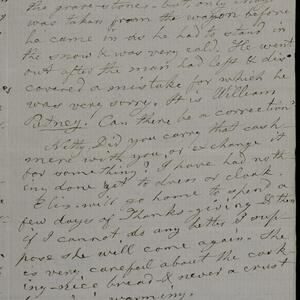 the grave-stones - but only
was taken from the wagon before
he came in as he had to stand in
the snow & was very cold. He went
out after the man had left & dis-
covered a mistake for which he
was very sorry. It is William
Putney! Can there be a correction?
Netty, Did you carry that cash-
mere with you, or exchange it
for something? I have had noth-
ing done yet to dress or cloak.
will go home to spend a
few days of Thanks-giving & then
if I cannot do any better I sup-
pose she will come again. She
is very careful about the cook-
ing - nice bread - & never a crust
warming